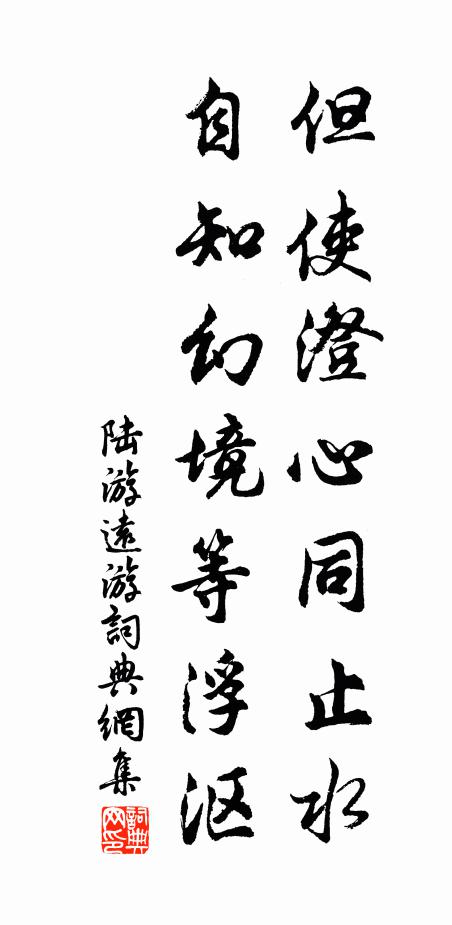 但使澄心同止水
自知幻境等浮沤
陆游遠游詞典網集
詞典网印